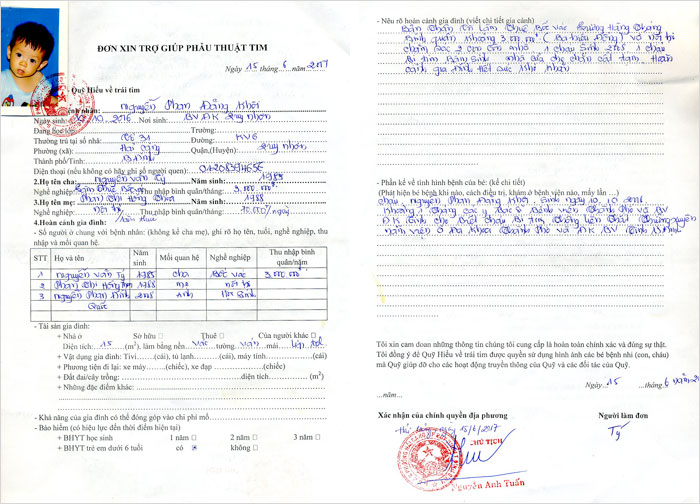 ĐƠN XIN TRỢ GIÚP PHẪU THUẬT TIM
Ngày 15 tháng 6 năm 2017
Quỹ Hiểu về trái tim
nhân: Nguyễn Phan Đăng Khôi
Ngày sinh: 10 2016 Nơi sinh: BVĐK Quy Nhơn
Đang học lớp: Trường:
Thường trú tại số nhà: Tổ 31 KV6
Phường (xã): Hải Cảng Quận,(Huyện): Quy Nhơn
Thành phố/Tỉnh: B.Định
Điện thoại (nếu không có hãy ghi số người quen):
2.Họ tên cha: Nguyễn Văn Tý Năm sinh: 1985
Nghề nghiệp: Làm Thuê Bốc vác Thu nhập bình quân/tháng: 3.000.000đ
3.Họ tên mẹ: Phan Thị Hồng Năm sinh: 1988
Nghề nghiệp: Nội trợ Thu nhập bình quân/tháng:
4.Hoàn cảnh gia đình:
- Số người ở chung với bệnh nhân: (không kể cha mẹ), ghi rõ họ tên, tuổi, nghề nghiệp, thu
nhập và mối quan hệ.
STT Họ và tên Năm sinh Mối quan hệ Nghề nghiệp Thu nhập bình quân/năm
1 Nguyễn Văn Tý 1985 cha Bốc vác 3.000.000đ
2 Phan Thị Hồng 1988 mẹ nội trợ
3 Nguyễn Phan Minh 2008 anh Học Sinh
Quốc
- Tài sản gia đình:
+ Nhà ở Sở hữu □ Thuê □ Của người khác □
Diện tích: 15 (m²), làm bằng nền vác tường ván mái lợp tôn
+ Vật dụng gia đình: Tivi (cái), tủ lạnh (cái), máy tính (cái)
+ Phương tiện đi lại: xe máy (chiếc), xe đạp (chiếc)
+ Đất đai/cây trồng: diện tích (m²)
+ Những đặc điểm khác:
- Khả năng của gia đình có thể đóng góp vào chi phí mổ
- Bảo hiểm (có hiệu lực đến thời điểm hiện tại)
+ BHYT học sinh 1 năm □ 2 năm □ 3 năm □
+ BHYT trẻ em dưới 6 tuổi có không □
- Nêu rõ hoàn cảnh gia đình (viết chi tiết gia cảnh)
Bản Thân Tôi Làm Thuê Bốc vác Lương Hằng Tháng
Bình quân Khoảng 3.000.000đ (Ba triệu đồng) vợ nội trợ
chăm sóc 2 con còn nhỏ 1 cháu sinh 2008 1 cháu
Bị tim Bẩm Sinh nhà cửa Hoàn
cảnh gia Đình Hết sức Khó Khăn
- Phần kể về tình hình bệnh của bé: (kể chi tiết)
(Phát hiện bé bệnh khi nào, cách điều trị, khám ở bệnh viện nào, mấy lần …)
cháu Nguyễn Phan Đăng Khôi sinh ngày 10.10.2016
Khoảng 1 Tháng Bệnh viện Thành phố và BV
ĐK Tỉnh cho Biết cháu Bị Tim cháu Thường xuyên
nằm viện ở Đa Khoa Thành Phố và ĐK BV Tỉnh B.Định
Tôi xin cam đoan những thông tin chúng tôi cung cấp là hoàn toàn chính xác và đúng sự thật.
Tôi đồng ý để Quỹ Hiểu về trái tim được quyền sử dụng hình ảnh các bé bệnh nhi (con, cháu)
mà Quỹ giúp đỡ cho các hoạt động truyền thông của Quỹ và các đối tác của Quỹ.
Ngày 15 tháng 6 năm
năm
Xác nhận của chính quyền địa phương Người làm đơn
ngày 15/6/2017 Tý
CHỦ TỊCH
Nguyễn Anh Tuấn